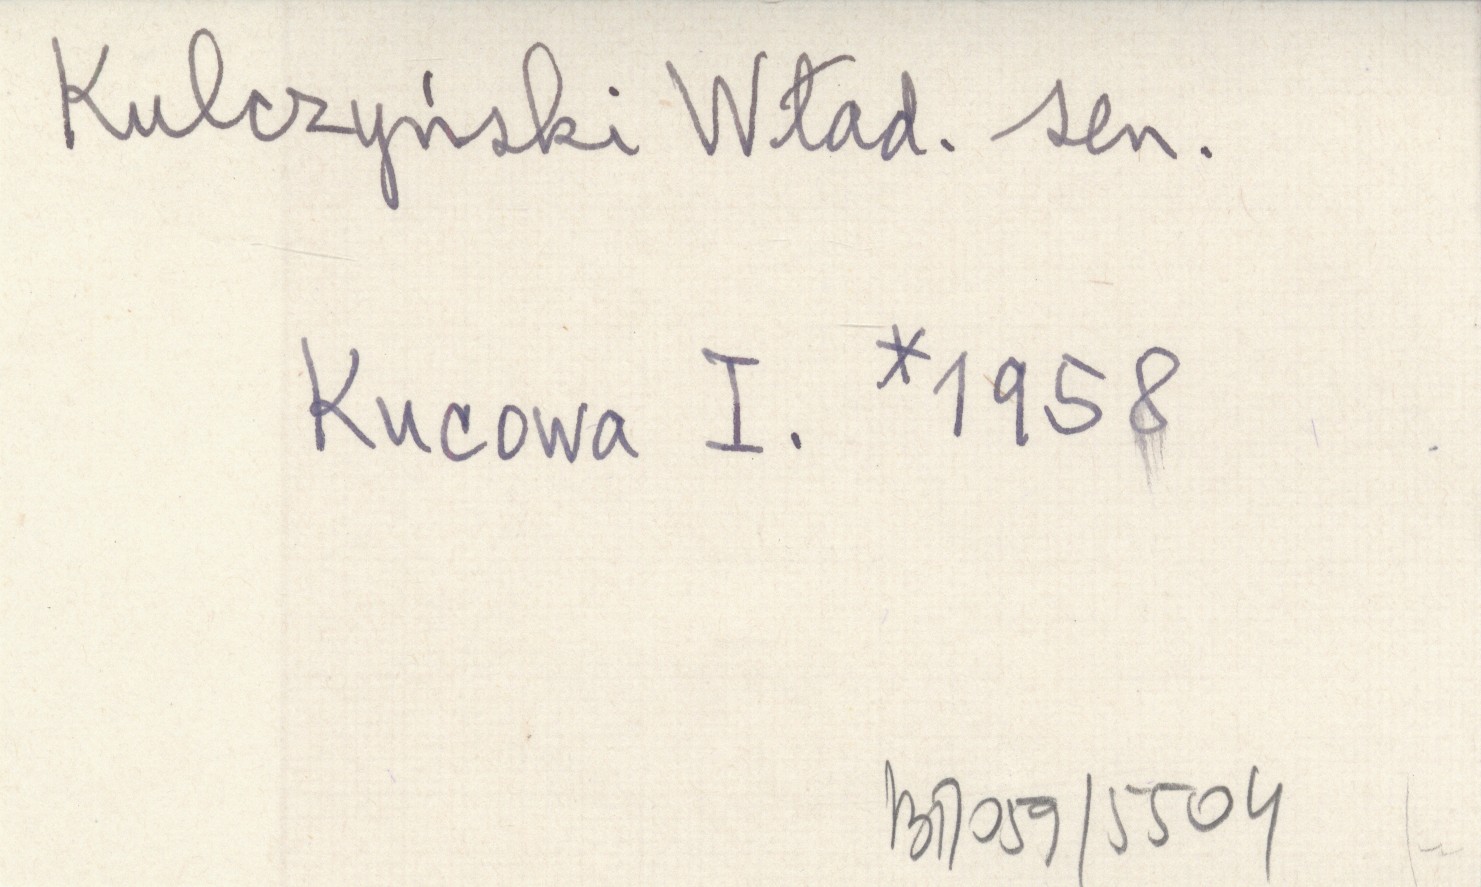 Kulczyński Wład. sen.
Kucowa I. *1958
BP/059/5504